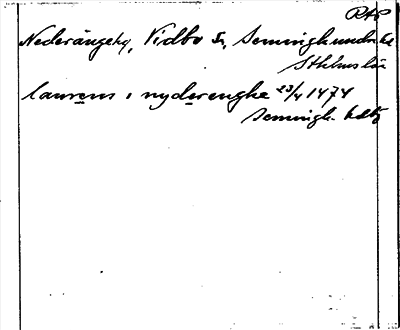 RAP
Nederängeby, Vidbo Sn, Seminghundra hd
Sthlms län
laurens i nyderenghe 23/4 1474
Semingh. hdtg